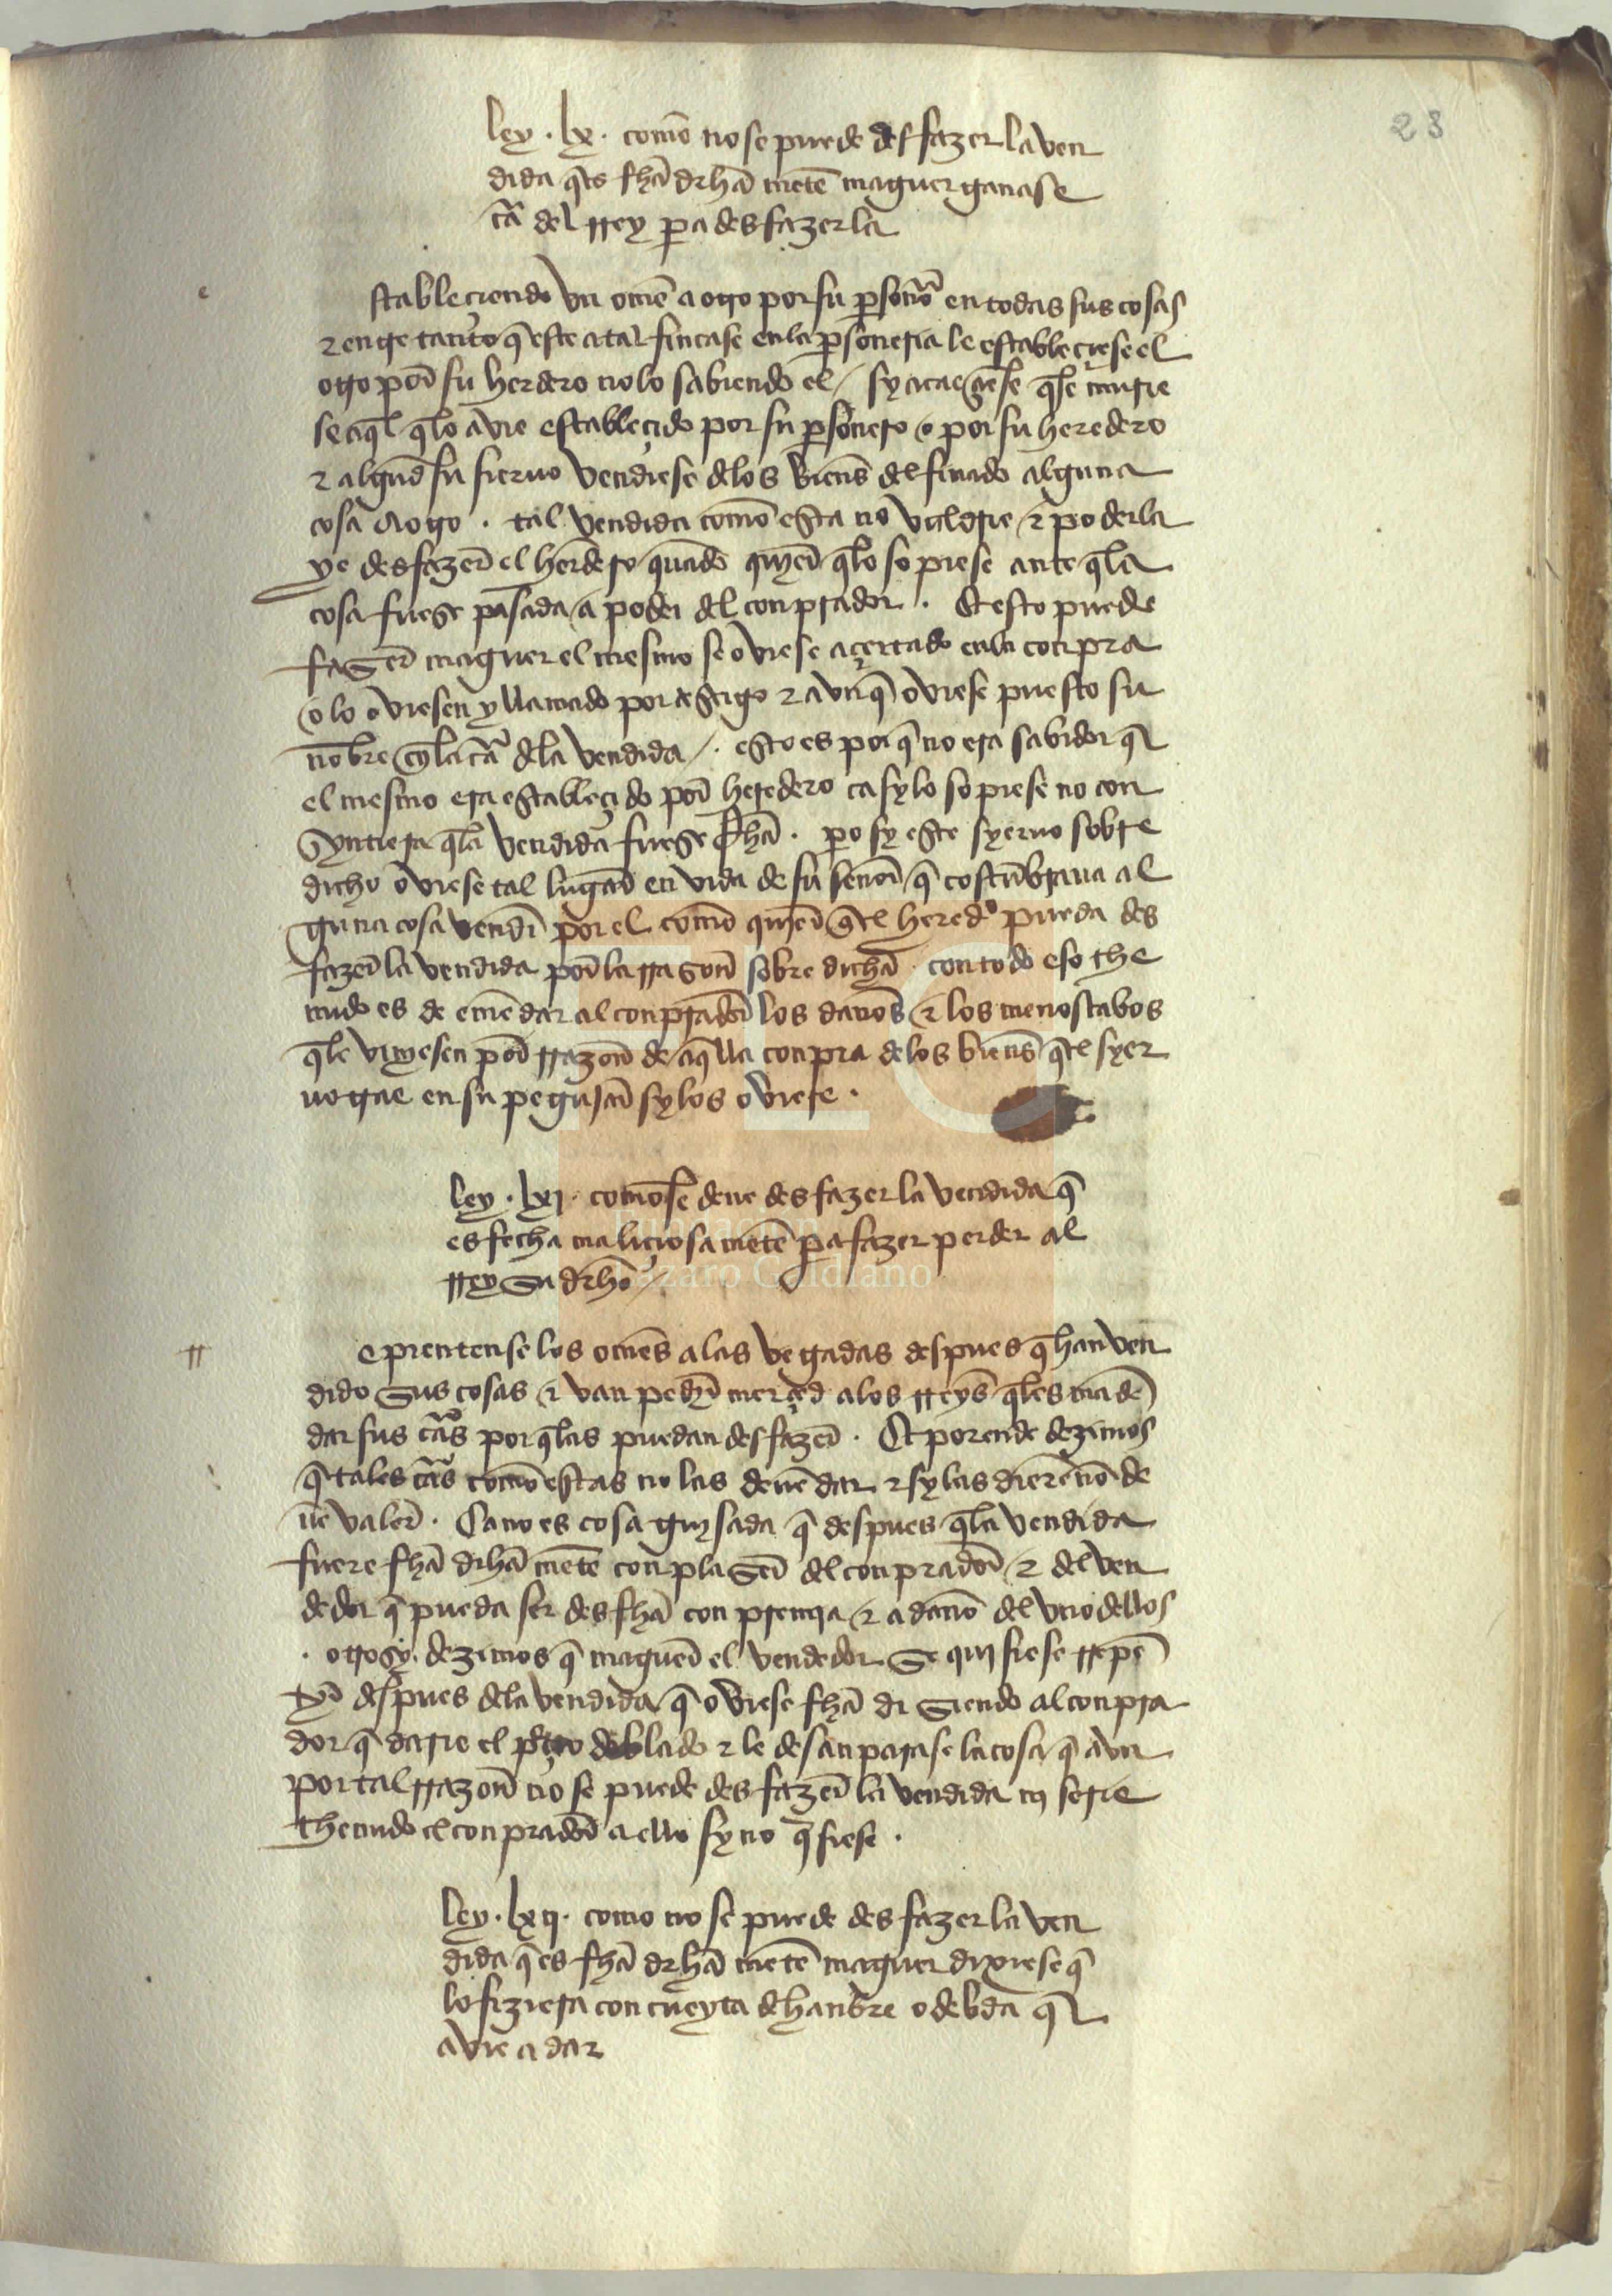 28
ley . lx . como no se puede desfazer la ven
dida q̄ es fhā drhā mēte maguer ganase
cȃ del rrey pa desfazer la
e
stableçiendo vn omē a otro por su psonero en todas sus cosas
z entre tanto q̄ este atal fincase en la psoneria le estableçiese el
otro por su herdero no lo sabiendo el / sy acaesçiese q̄le murie
se aq̄l q̄lo avie establecido por su psonero o por su heredero
z algund su sieruo vendiese delos bienes del finado alguna
cosa a otro . tal vendida como esta no valdrie z poderla
ye desfazer el herdero quādo quier q̄lo sopiese ante q̄la
cosa fuese pasada a poder del conprador . Et esto puede
faser maguer el mesmo se oviese açertado enla conpra
o lo oviesen y llamado por testigo z avnq̄ oviese puesto su
nonbre enla cȃ dela vendida / . esto es por q̄ no era sabidor q̄
el mesmo era establecido por heredero ca sy lo sopiese no con
syntiera q̄la vendida fuese fhā . po sy este syeruo sobre
dicho oviese tal lugar en vida de su señor q̄ costūbraua al
guna cosa vender por el como quier q̄ el hered° pueda des
fazer la vendida por la rrason sobre dicha . con todo eso the
nudo es de emēdar al conprador los daños z los menoscabos
q̄le viniesen por rrazon de aq̄lla conpra delos bienes q̄ el syer
uo trae en su pegujar sy los oviere .
ley . lxj . como se deue desfazer la vendida q̄
es fecha maliçiosa mētē pa fazer perder al
rrey su drhō /
Lázaro Galdiano
rr
epientense los omēs a las vegadas despues q̄ han ven
dido sus cosas z van pedir merçed alos rreyes q̄les mādē
dar sus cȃs por q̄ las puedan desfazer . Et por ende dezimos
q̄ tales cȃs como estas no las deuē dar z sy las dierē nō de
uē valer . Ca no es cosa guisada q̄ despues q̄la vendida
fuere fhā drhā mēte con plaser del conprador z del ven
dedor q̄ pueda ser desfhā con premia z a daño del vno dellos
. otrosy dezimos q̄ maguer el vendedor se quisiese rrepē
tyr despues dela vendida q̄ oviese fhā disiendo al conpra
dor q̄ darie el preçio doblado z le desanparase la cosa q̄ avn
por tal rrazon no se puede desfazer la vendida nj serie
thenudo el conprador a ello sy no q̄siese .
ley . lxij . como no se puede desfazer la ven
dida q̄ es fhā drhā mētē maguer dixiese q̄
lo fiziera con cueyta de hanbre o debda q̄
avie a dar